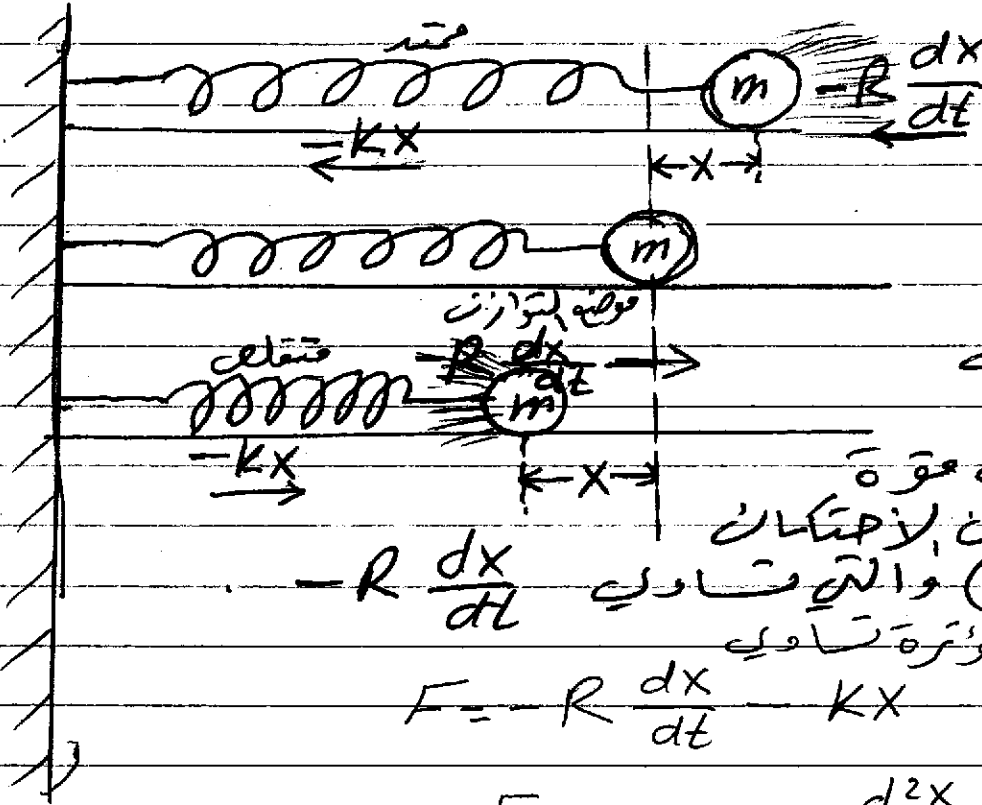 ممتد
m
-R dx/dt
-KX
X
m
موضع التوازن
متقلص
R dx/dt
m
-KX
X
قوة
الأحتكاك
والتي تساوي -R dx/dt
تساوي
F = -R dx/dt - KX
d²x